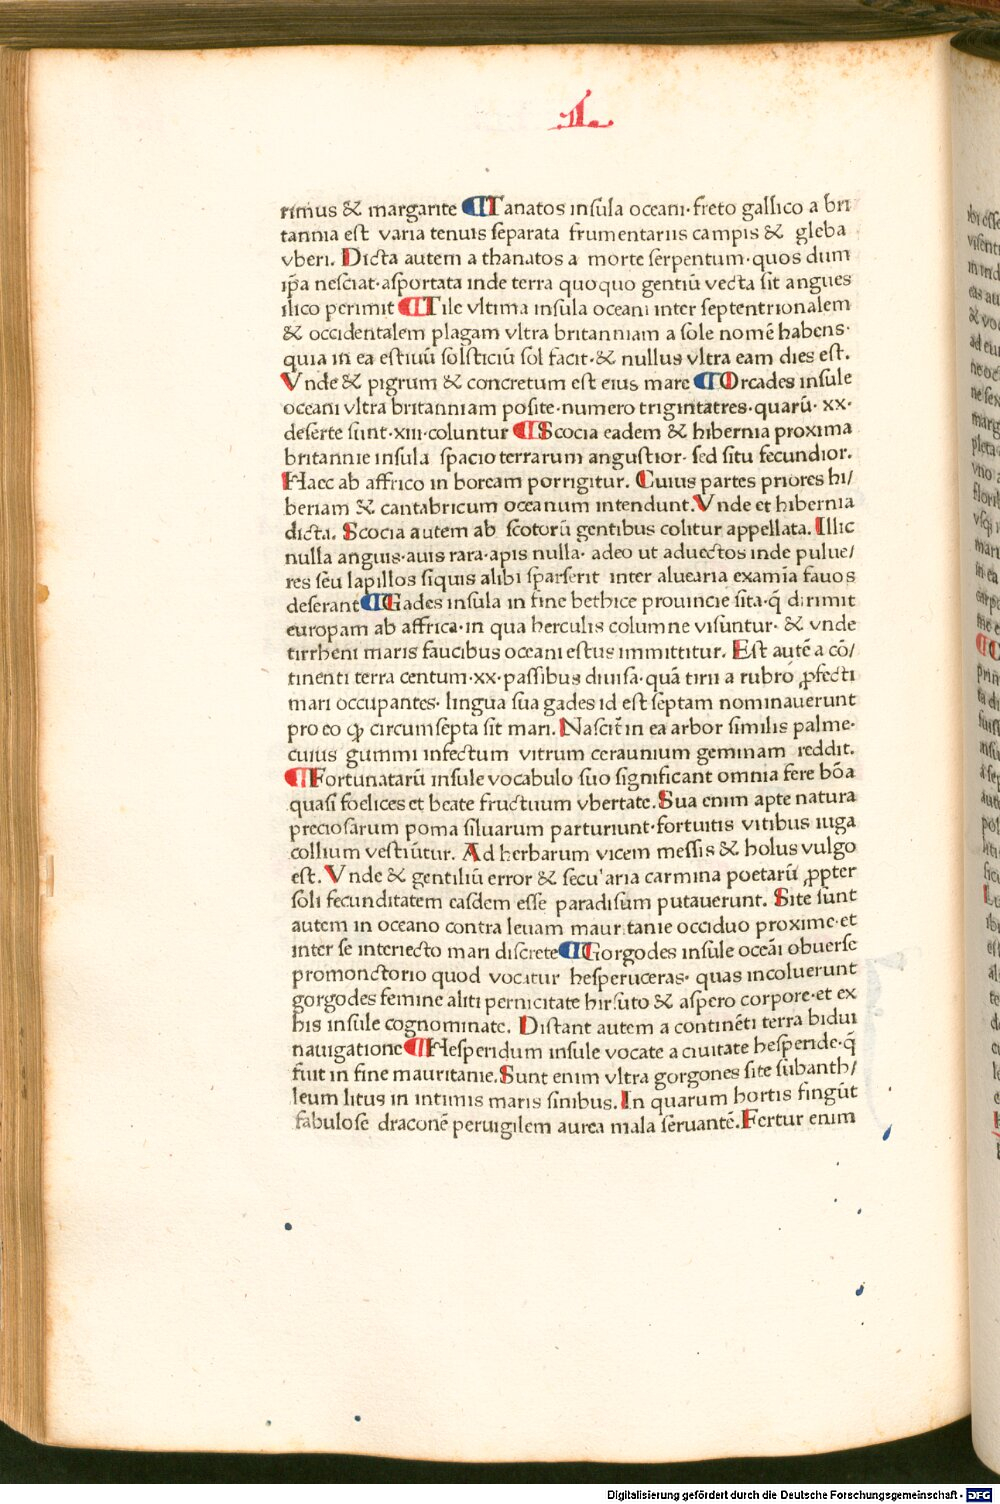 .L.
rimus & margarite ¶ Tanatos insula oceani·freto gallico a bri
tannia est varia tenuis separata frumentariis campis & gleba
vberi. Dicta autem a thanatos a morte serpentum·quos dum
ip̄a nesciat·asportata inde terra quoquo gentiū vecta sit angues
ilico perimit ¶ Tile vltima insula oceani inter septentrionalem
& occidentalem plagam vltra britanniam a sole nomē habens·
quia in ea estiuū solsticiū sol facit·& nullus vltra eam dies est.
Vnde & pigrum & concretum est eius mare ¶ Orcades insule
oceani vltra britanniam posite·numero trigintatres·quarū· xx·
deserte sunt·xiii·coluntur ¶ Scocia eadem & hibernia proxima
britannie insula spacio terrarum angustior· sed situ fecundior.
Haec ab affrico in boream porrigitur. Cuius partes priores hi/
beriam & cantabricum oceanum intendunt. Vnde et hibernia
dicta. Scocia autem ab scotorū gentibus colitur appellata. Illic
nulla anguis·auis rara·apis nulla· adeo ut aduectos inde pulue/
res seu lapillos siquis alibi sparserit inter aluearia examīa fauos
deserant ¶ Gades insula in fine bethice prouincie sita·q̄ dirimit
europam ab affrica·in qua herculis columne visuntur· & vnde
tirrheni maris faucibus oceani estus immittitur. Est autē a cō/
tinenti terra centum·xx·passibus diuisa·quā tirii a rubro ꝓfecti
mari occupantes· lingua sua gades id est septam nominauerunt
pro eo ꝙ circumsepta sit mari. Nascit̄ in ea arbor similis palme·
cuius gummi infectum vitrum ceraunium geminam reddit.
¶ Fortunatarū insule vocabulo suo significant omnia fere bōa
quasi foelices et beate fructuum vbertate. Sua enim apte natura
preciosarum poma siluarum parturiunt·fortuitis vitibus iuga
collium vestiūtur. Ad herbarum vicem messis & holus vulgo
est. Vnde & gentiliū error & secu'aria carmina poetarū ꝓpter
soli fecunditatem easdem esse paradisum putauerunt. Site sunt
autem in oceano contra leuam mauritanie occiduo proxime·et
inter se interiecto mari discrete ¶ Gorgodes insule oceāi obuerse
promonctorio quod vocatur hesperuceras· quas incoluerunt
gorgodes femine aliti pernicitate hirsuto & aspero corpore·et ex
his insule cognominate. Distant autem a continēti terra bidui
nauigatione ¶ Hesperidum insule vocate a ciuitate hesperide·q̄
fuit in fine mauritanie. Sunt enim vltra gorgones site subanth/
leum litus in intimis maris sinibus. In quarum hortis fingūt
fabulose draconē peruigilem aurea mala seruantē. Fertur enim
Digitalisierung gefördert durch die Deutsche Forschungsgemeinschaft - DFG